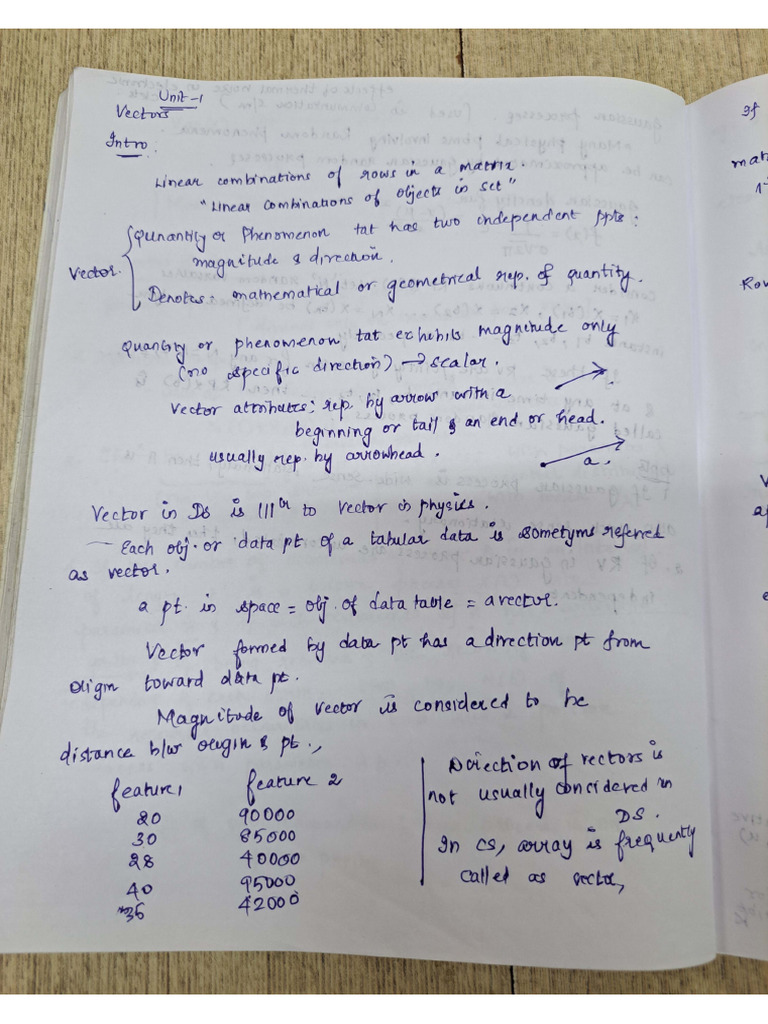 Unit-1
Vectors
Intro:
Linear combinations of rows in a matrix.
"Linear combinations of objects in set"
Vector.
Qunantity or Phenomenon tat has two independent ppts:
magnitude & direction.
Denotes: mathematical or geometrical rep. of quantity.
Quantity or phenomenon tat exhibits magnitude only
(no specific direction) → scalar.
Vector attributes: rep. by arrow with a
beginning or tail & an end or head.
usually rep. by arrowhead.
a.
Vector in DS is lllar to vector in physics.
Each obj. or data pt of a tabular data is sometyms referred
as vector.
a pt. in space = obj. of data table = a vector.
Vector formed by data pt has a direction pt from
origin toward data pt.
Magnitude of vector is considered to be
distance b/w origin & pt.,
feature 1 feature 2
20 90000
30 85000
28 40000
40 95000
36 42000
Direction of vectors is
not usually considered in
DS.
In CS, array is frequently
called as vector,
3f
mat
Row
V